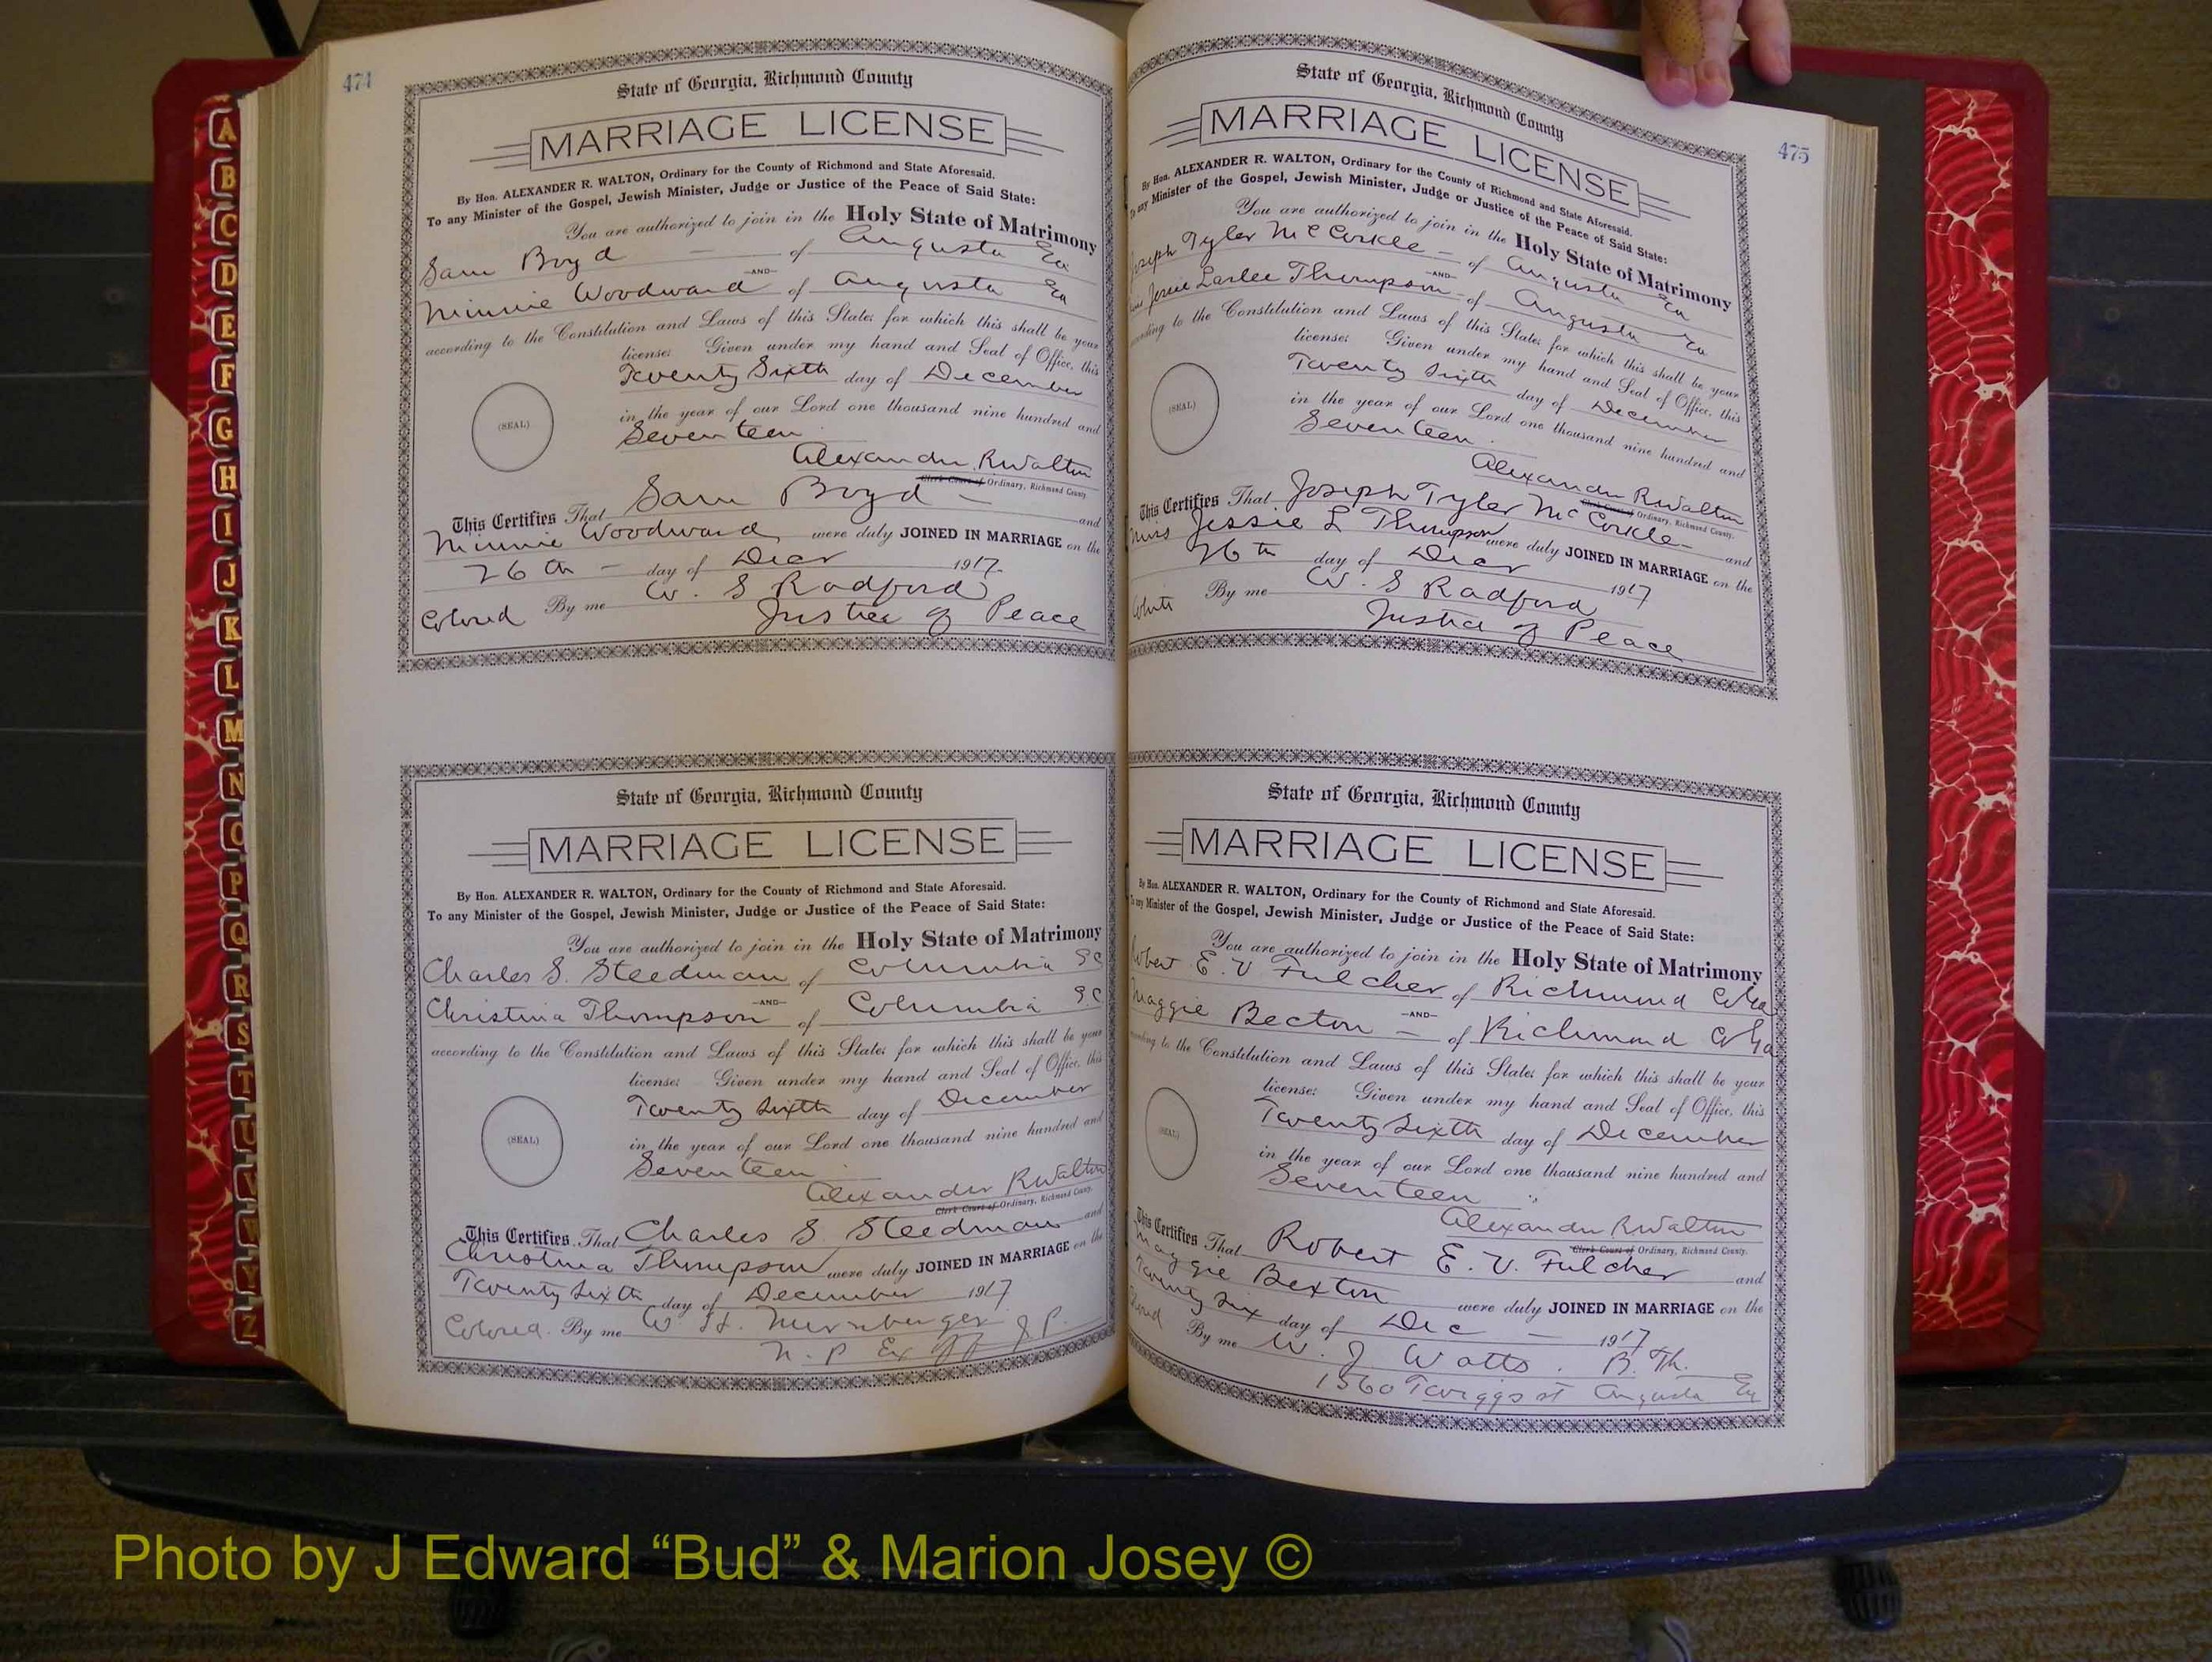 474
State of Georgia, Richmond County
MARRIAGE LICENSE
By Hon. ALEXANDER R. WALTON, Ordinary for the County of Richmond and State Aforesaid.
To any Minister of the Gospel, Jewish Minister, Judge or Justice of the Peace of Said State:
You are authorized to join in the Holy State of Matrimony
Sam Boyd — of Augusta Ga
—AND—
Minnie Woodward of Augusta Ga
according to the Constitution and Laws of this State; for which this shall be your
license: Given under my hand and Seal of Office, this
Twenty Sixth day of December
in the year of our Lord one thousand nine hundred and
(SEAL)
Seventeen
Alexander R Walton
Clerk Court of Ordinary, Richmond County.
This Certifies That Sam Boyd — and
Minnie Woodward were duly JOINED IN MARRIAGE on the
26th — day of Decr 1917.
Colored By me W. S Radford
Justice of Peace
State of Georgia, Richmond County
MARRIAGE LICENSE
By Hon. ALEXANDER R. WALTON, Ordinary for the County of Richmond and State Aforesaid.
To any Minister of the Gospel, Jewish Minister, Judge or Justice of the Peace of Said State:
You are authorized to join in the Holy State of Matrimony
Charles S. Steedman of Columbia SC
—AND—
Christina Thompson of Columbia SC
according to the Constitution and Laws of this State; for which this shall be your
license: Given under my hand and Seal of Office, this
Twenty Sixth day of December
(SEAL)
in the year of our Lord one thousand nine hundred and
Seventeen
Alexander R Walton
Clerk Court of Ordinary, Richmond County.
This Certifies That Charles S. Steedman and
Christina Thompson were duly JOINED IN MARRIAGE on the
Twenty Sixth day of December 1917
Colored. By me W. H.
N. P Ex off J P.
475
State of Georgia, Richmond County
MARRIAGE LICENSE
By Hon. ALEXANDER R. WALTON, Ordinary for the County of Richmond and State Aforesaid.
To any Minister of the Gospel, Jewish Minister, Judge or Justice of the Peace of Said State:
You are authorized to join in the Holy State of Matrimony
Joseph Tyler McCorkle — of Augusta Ga
—AND—
Miss Jessie Thompson of Augusta Ga
according to the Constitution and Laws of this State; for which this shall be your
license: Given under my hand and Seal of Office, this
Twenty Sixth day of December
(SEAL)
in the year of our Lord one thousand nine hundred and
Seventeen.
Alexander R Walton
Clerk Court of Ordinary, Richmond County.
This Certifies That Joseph Tyler McCorkle — and
Miss Jessie L Thompson were duly JOINED IN MARRIAGE on the
26th day of Decr 1917
White By me W. S Radford
Justice of Peace
State of Georgia, Richmond County
MARRIAGE LICENSE
By Hon. ALEXANDER R. WALTON, Ordinary for the County of Richmond and State Aforesaid.
To any Minister of the Gospel, Jewish Minister, Judge or Justice of the Peace of Said State:
You are authorized to join in the Holy State of Matrimony
Robert E. V Fulcher of Richmond Co Ga
—AND—
Maggie Becton — of Richmond Co Ga
according to the Constitution and Laws of this State; for which this shall be your
license: Given under my hand and Seal of Office, this
Twenty Sixth day of December
(SEAL)
in the year of our Lord one thousand nine hundred and
Seventeen
Alexander R Walton
Clerk Court of Ordinary, Richmond County.
This Certifies That Robert E. V. Fulcher and
Maggie Bexton were duly JOINED IN MARRIAGE on the
Twenty Six day of Dec — 1917
Colored By me W. J Watts. B. Th.
1560 Twiggs st Augusta Ga
A
B
C
D
E
F
G
H
I
J
K
L
M
N
O
P
Q
R
S
T
U
V
W
Y
Z
Photo by J Edward “Bud” & Marion Josey ©